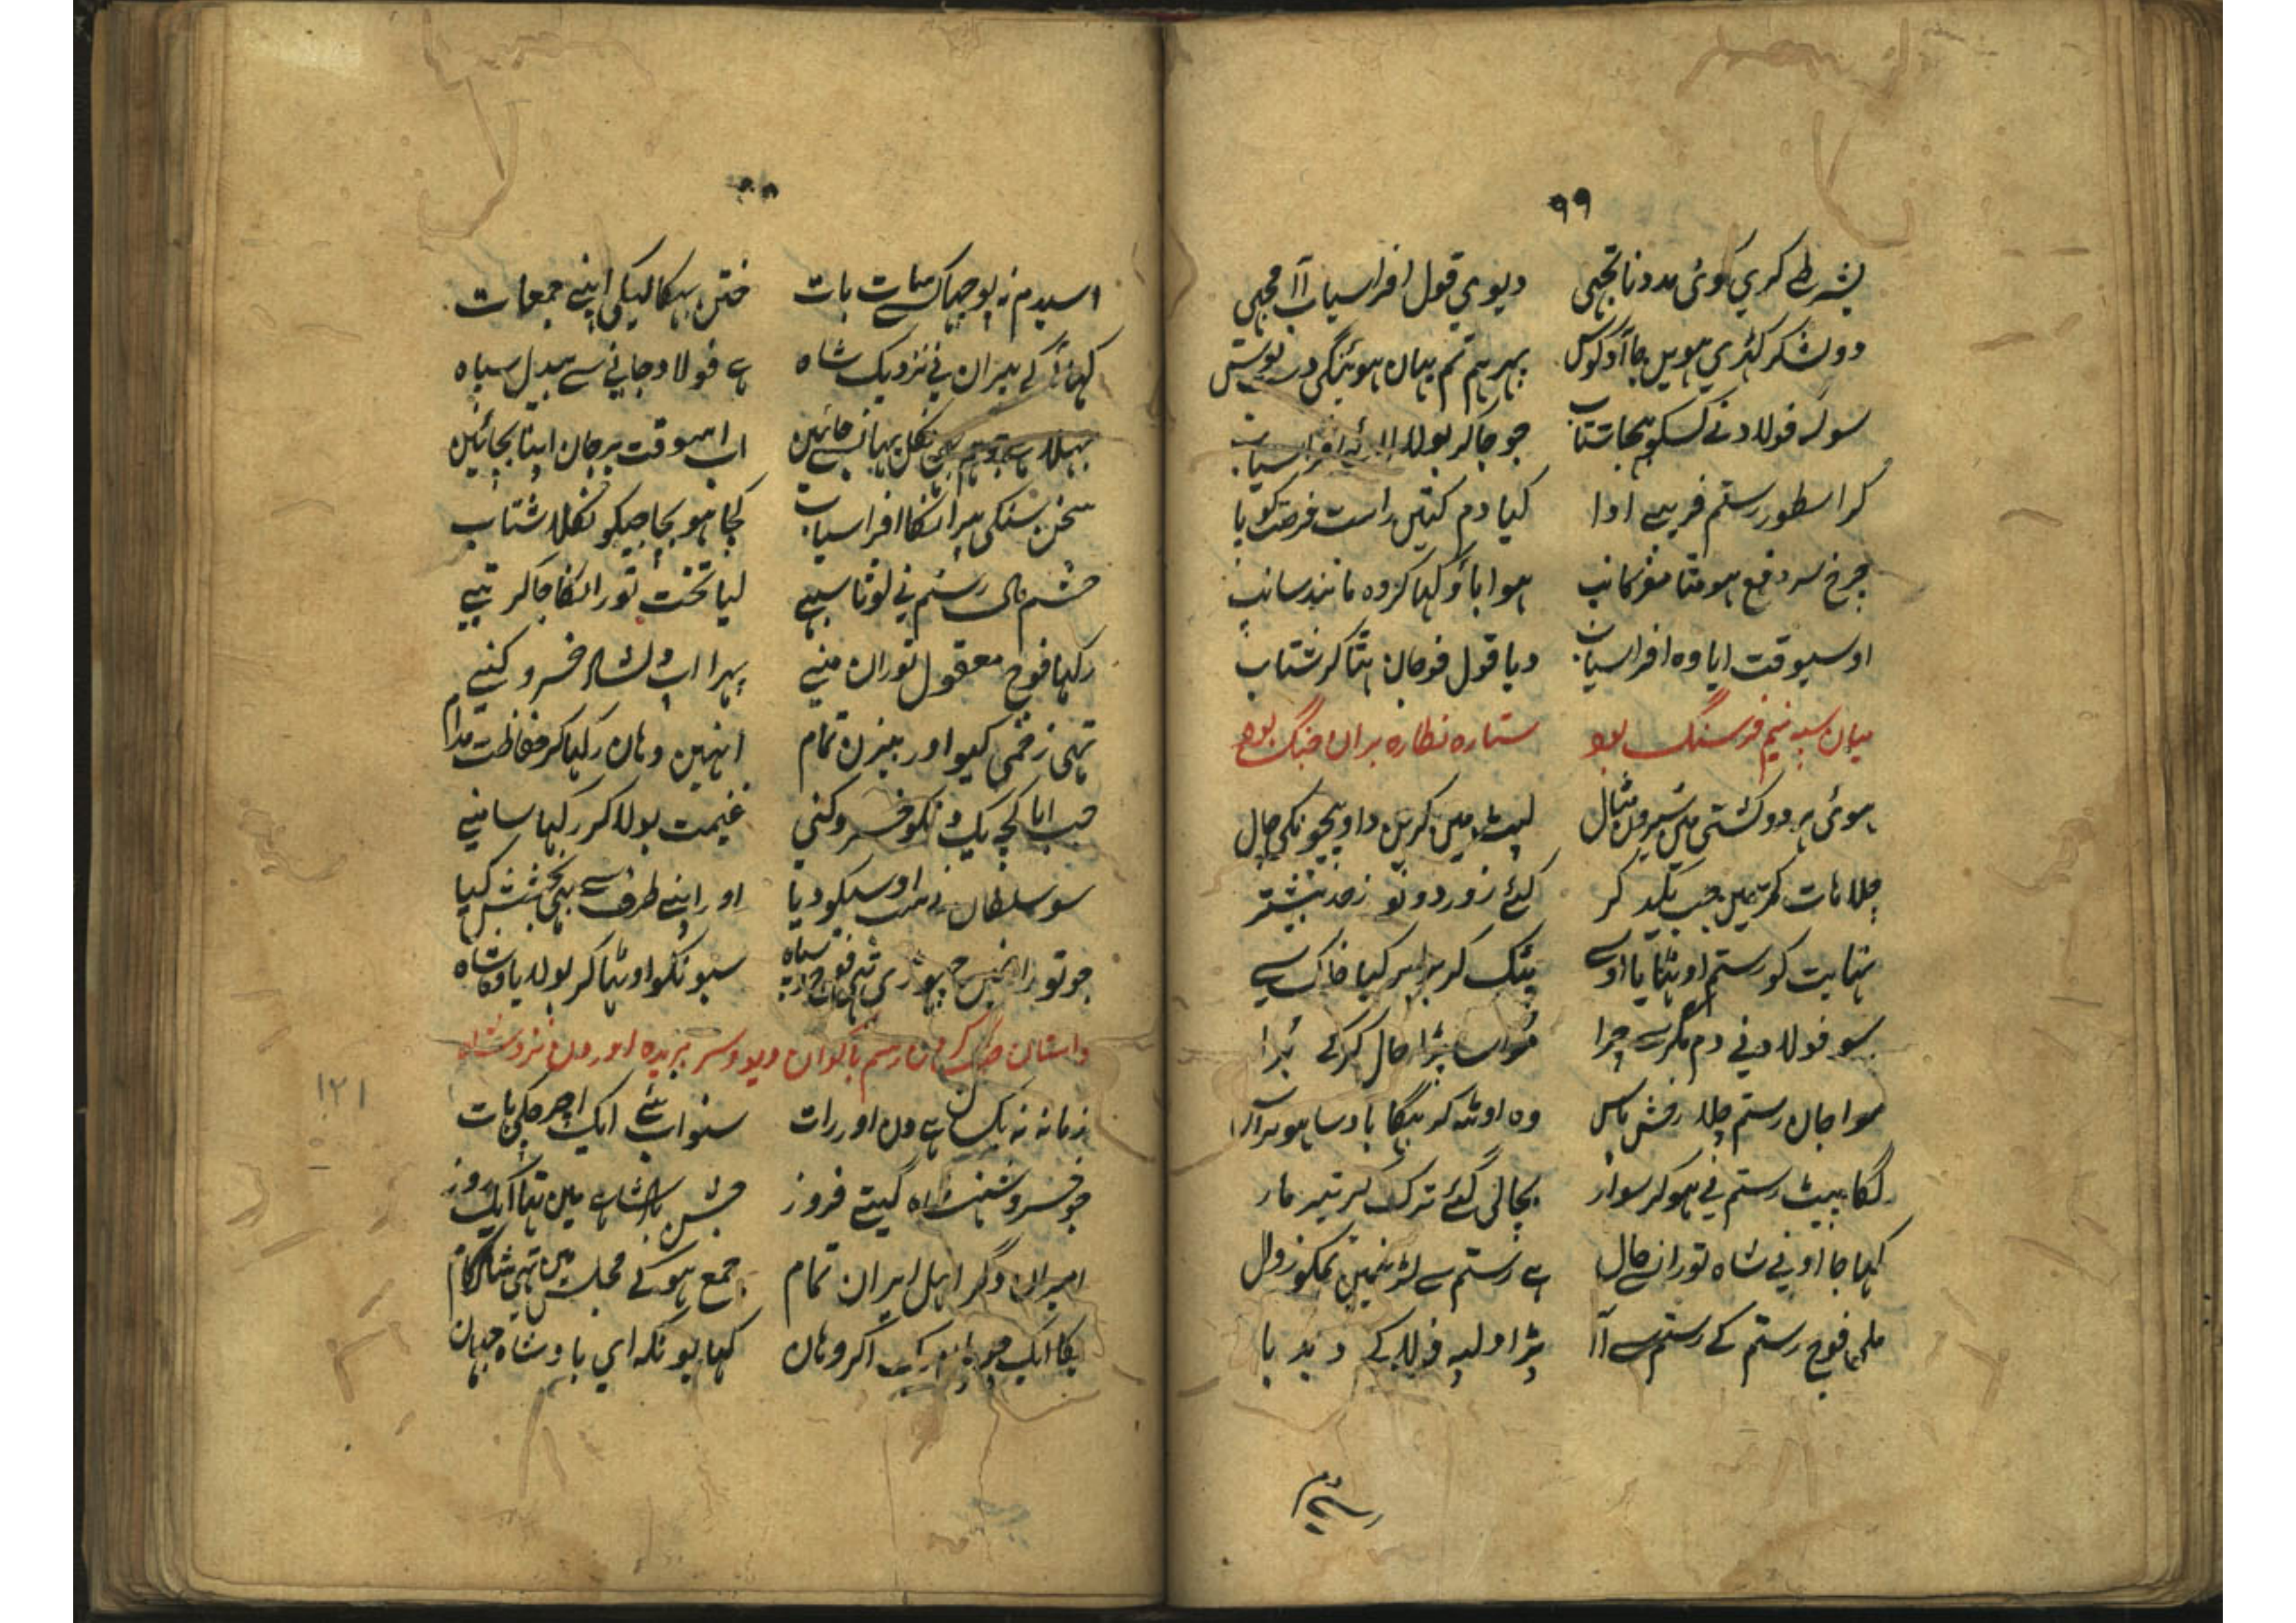 ۹۹
بشرطے کری کوئی مدد نا تجھی دیوی قول افراسیاب آ مجھی
دو لشکر کھڑی ہویں جا آدکوس پھر ہم تم یہان ہوئنگی دست بوس
سو کہ فولاد نے کسکو بھجا شتاب جو جا کر بولا لائے افراسیاب
کر اسطور رستم فریبے ادا کیا دم کتیں راست فرصت کو پا
چرخ سر دفع ہو متا مغز کانپ ہوا باؤ کھا کر وہ مانند سانپ
اوسیوقت ایا وہ افراسیاب دیا قول فوجان ہتا کر شتاب
میان سپہ نیم فرسنگ بود ستاره نظاره بران جنگ بود
ہوئی ہر دو کشتی میں شیروں مثال لپٹ میں کریں داو پیچونکی چال
چلا ہات کرتیں جب یکدگر کئے زور دونو زحد بیشتر
نہایت کو رستم اوٹھایا اوسے پٹک کر برابر کیا خاک سے
سو فولاد نے دم مکر سے چرا مواسا پڑا حال کر کے بُرا
موا جان رستم چلا رخش پاس وہ اوٹھ کر بھگا
لگا پیٹ رستم نے ہو کر سوار بچا لی گئے ترک کر تیر مار
کہا جا اونے شاہ توران سے حال ہے رستم سے لڑنیمیں تمکو زوال
ملی فوج رستم کے رستم سے آ پڑا
رستم
اسیدم نہ پوچھا کسے سات بات ختن بھکا لیکی اپنے جمعات
کہا آ کے پیران نے نزدیک شاہ ہے فولاد جانے سے بیدل سپاہ
بھلا ہے تو ہم بھی نکل یہانسے جائیں اب اسوقت پر جان اپنا بچائیں
سخن سنکی پیرانکا افراسیاب کچا ہو بچا جیکو نکلا شتاب
حشم مال رستم نے لوٹا سبھے لیا تخت تورانکا جا کر تبھے
رکھا فوج معقول توران منے پھرا اپ شاہ خسرو کنے
تہی زخمی گیو اور بیژن تمام انہیں وہاں رکھا کر حفاظت مدام
جب ایا کچہ یک خسرو کنی غنیمت بولا کر رکھا سامنے
سو سلطان نے سب اوسیکو دیا اور اپنے طرف سے بھی بخشش کیا
جو توران میں چھوڑی تہی فوج سپاہ سبونکو اوٹھا کر بولایا وہ شاہ
داستان جنگ کردن رستم با اکوان دیو و سر بریده اوردن نزد شاه
زمانہ نہ یکساں ہے دن اور رات سنو اب نئے ایک اچرچکی بات
جو خسرو شہنشاہ گیتے فروز جشن بادشاہے میں تھا ایک روز
امیران دگر اہل ایران تمام جمع ہو کے مجلس میں تہی شادکام
یکا ایک اکر وہاں کہا یونکہ ای بادشاہ جہان
۱۲۱